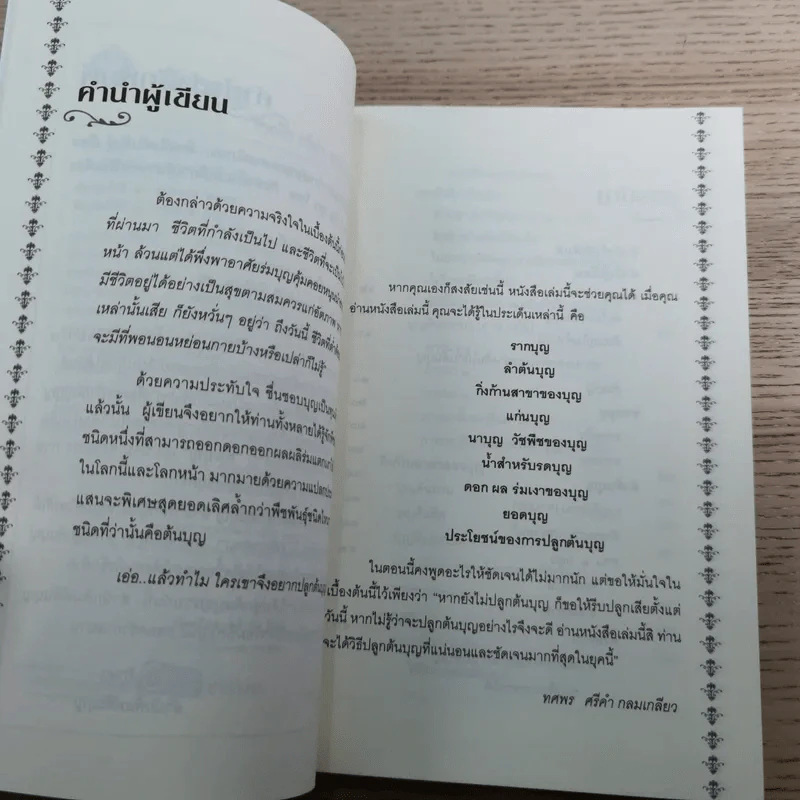 คำนำผู้เขียน
ต้องกล่าวด้วยความจริงใจในเบื้องต้นนี้
ที่ผ่านมา ชีวิตที่กำลังเป็นไป และชีวิตที่จะเป็น
หน้า ล้วนแต่ได้พึ่งพาอาศัยร่มบุญคุ้มคอย
มีชีวิตอยู่ได้อย่างเป็นสุขตามสมควรแก่อัตภาพ
เหล่านั้นเสีย ก็ยังหวั่นๆ อยู่ว่า ถึงวันนี้ ชีวิต
จะมีที่พอนอนหย่อนกายบ้างหรือเปล่าก็ไม่รู้
ด้วยความประทับใจ ชื่นชอบบุญเป็น
แล้วนั้น ผู้เขียนจึงอยากให้ท่านทั้งหลายได้รู้จัก
ชนิดหนึ่งที่สามารถออกดอกออกผลผลิร่มแตก
ในโลกนี้และโลกหน้า มากมายด้วยความแปลก
แสนจะพิเศษสุดยอดเลิศล้ำกว่าพืชพันธุ์ชนิด
ชนิดที่ว่านั้นคือต้นบุญ
เอ่อ..แล้วทำไม ใครเขาจึงอยากปลูกต้นบุญ
หากคุณเองก็สงสัยเช่นนี้ หนังสือเล่มนี้จะช่วยคุณได้ เมื่อคุณ
อ่านหนังสือเล่มนี้ คุณจะได้รู้ในประเด็นเหล่านี้ คือ
รากบุญ
ลำต้นบุญ
กิ่งก้านสาขาของบุญ
แก่นบุญ
นาบุญ วัชพืชของบุญ
น้ำสำหรับรดบุญ
ดอก ผล ร่มเงาของบุญ
ยอดบุญ
ประโยชน์ของการปลูกต้นบุญ
ในตอนนี้คงพูดอะไรให้ชัดเจนได้ไม่มากนัก แต่ขอให้มั่นใจใน
เบื้องต้นนี้ไว้เพียงว่า "หากยังไม่ปลูกต้นบุญ ก็ขอให้รีบปลูกเสียตั้งแต่
วันนี้ หากไม่รู้ว่าจะปลูกต้นบุญอย่างไรจึงจะดี อ่านหนังสือเล่มนี้สิ ท่าน
จะได้วิธีปลูกต้นบุญที่แน่นอนและชัดเจนมากที่สุดในยุคนี้"
ทศพร ศรีคำ กลมเกลียว